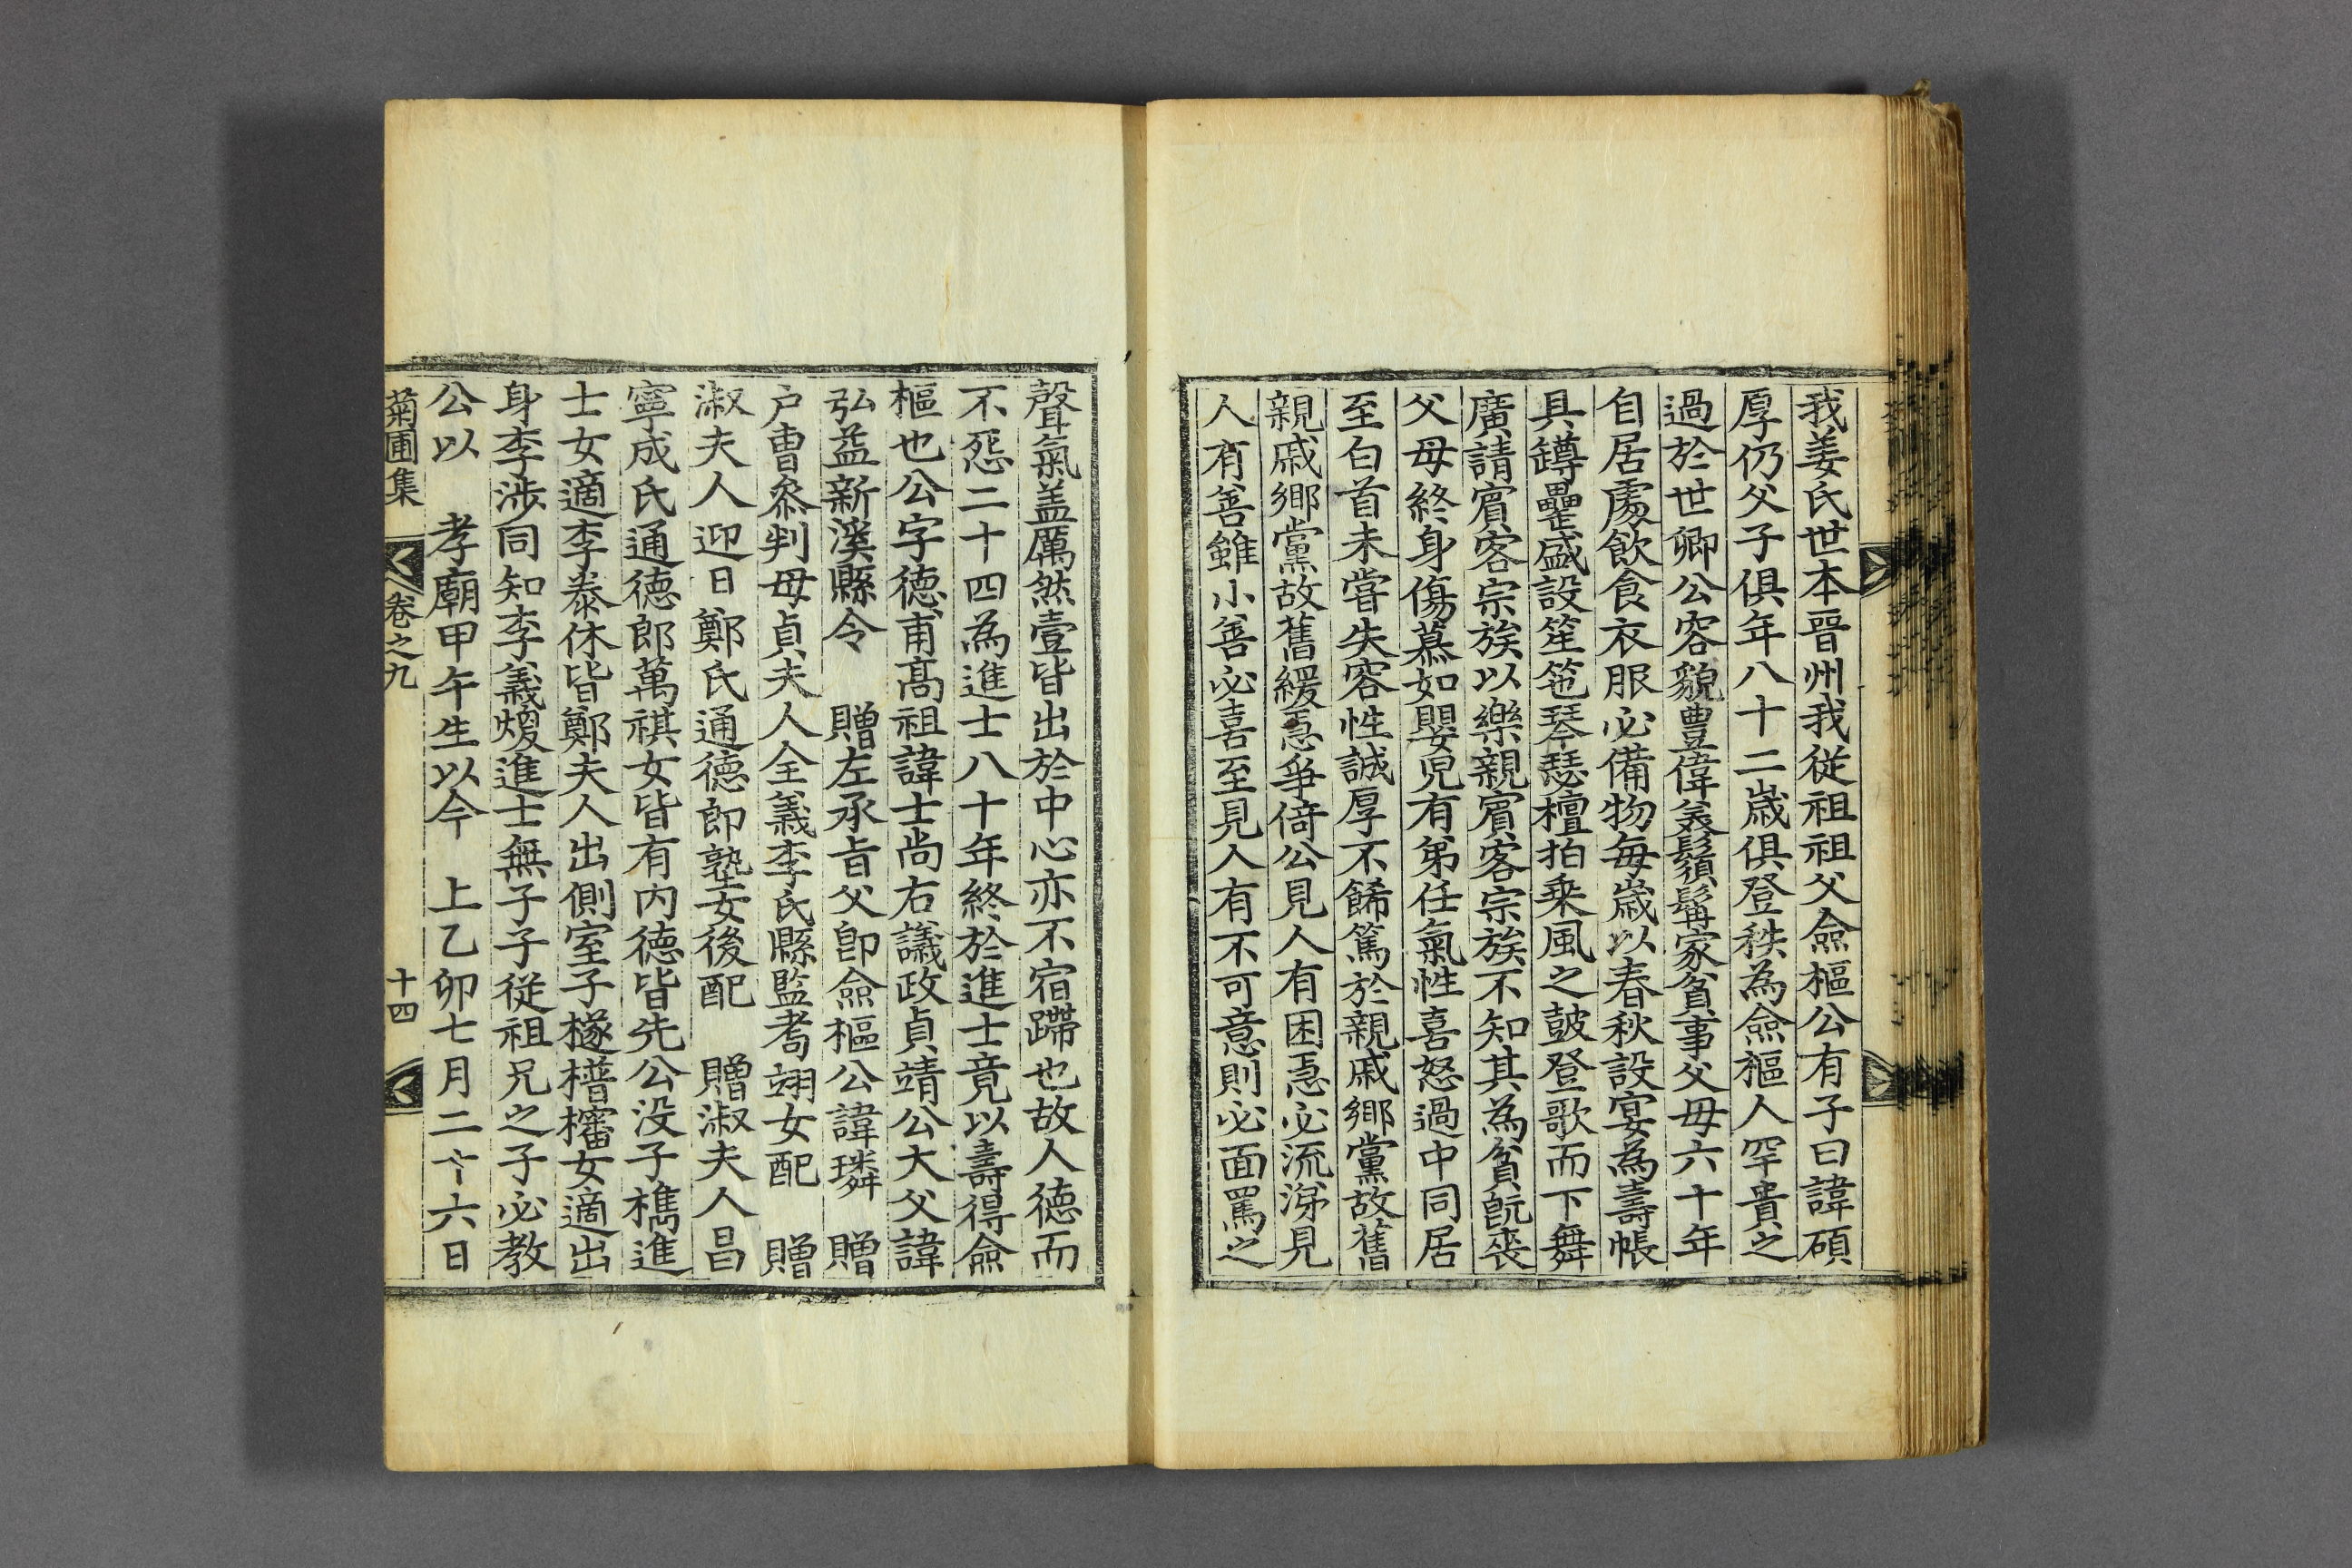 我姜氏世本晉州我從祖祖父僉樞公有子曰諱碩
厚仍父子俱年八十二歲俱登秩為僉樞人罕貴之
過於世卿公容貌豊偉美鬚髯家貧事父母六十年
自居處飮食衣服必備物每歲以春秋設宴為壽帳
具罇罍盛設笙笆琴瑟檀拍乘風之皷登歌而下舞
廣請賓客宗族以樂親賓客宗族不知其為貧旣喪
父母終身傷慕如嬰兒有弟任氣性喜怒過中同居
至白首未嘗失容性誠厚不餙篤於親戚鄕黨故舊
親戚鄕黨故舊緩急爭倚公見人有困急必流涕見
人有善雖小善必喜至見人有不可意則必面罵之
聲氣盖厲然壹皆出於中心亦不宿蹛也故人德而
不怨二十四為進士八十年終於進士竟以壽得僉
樞也公字德甫高祖諱士尙右議政貞靖公大父諱
弘益新溪縣令 贈左承旨父卽僉樞公諱璘 贈
戶曹叅判母貞夫人全義李氏縣監耉翊女配 贈
淑夫人迎日鄭氏通德郞塾女後配 贈淑夫人昌
寧成氏通德郞萬祺女皆有內德皆先公沒子檇進
士女適李泰休皆鄭夫人出側室子檖櫓櫁女適出
身李涉同知李義㷞進士無子子從祖兄之子必教
公以 孝廟甲午生以今 上乙卯七月二十六日
菊圃集 卷之九 十四